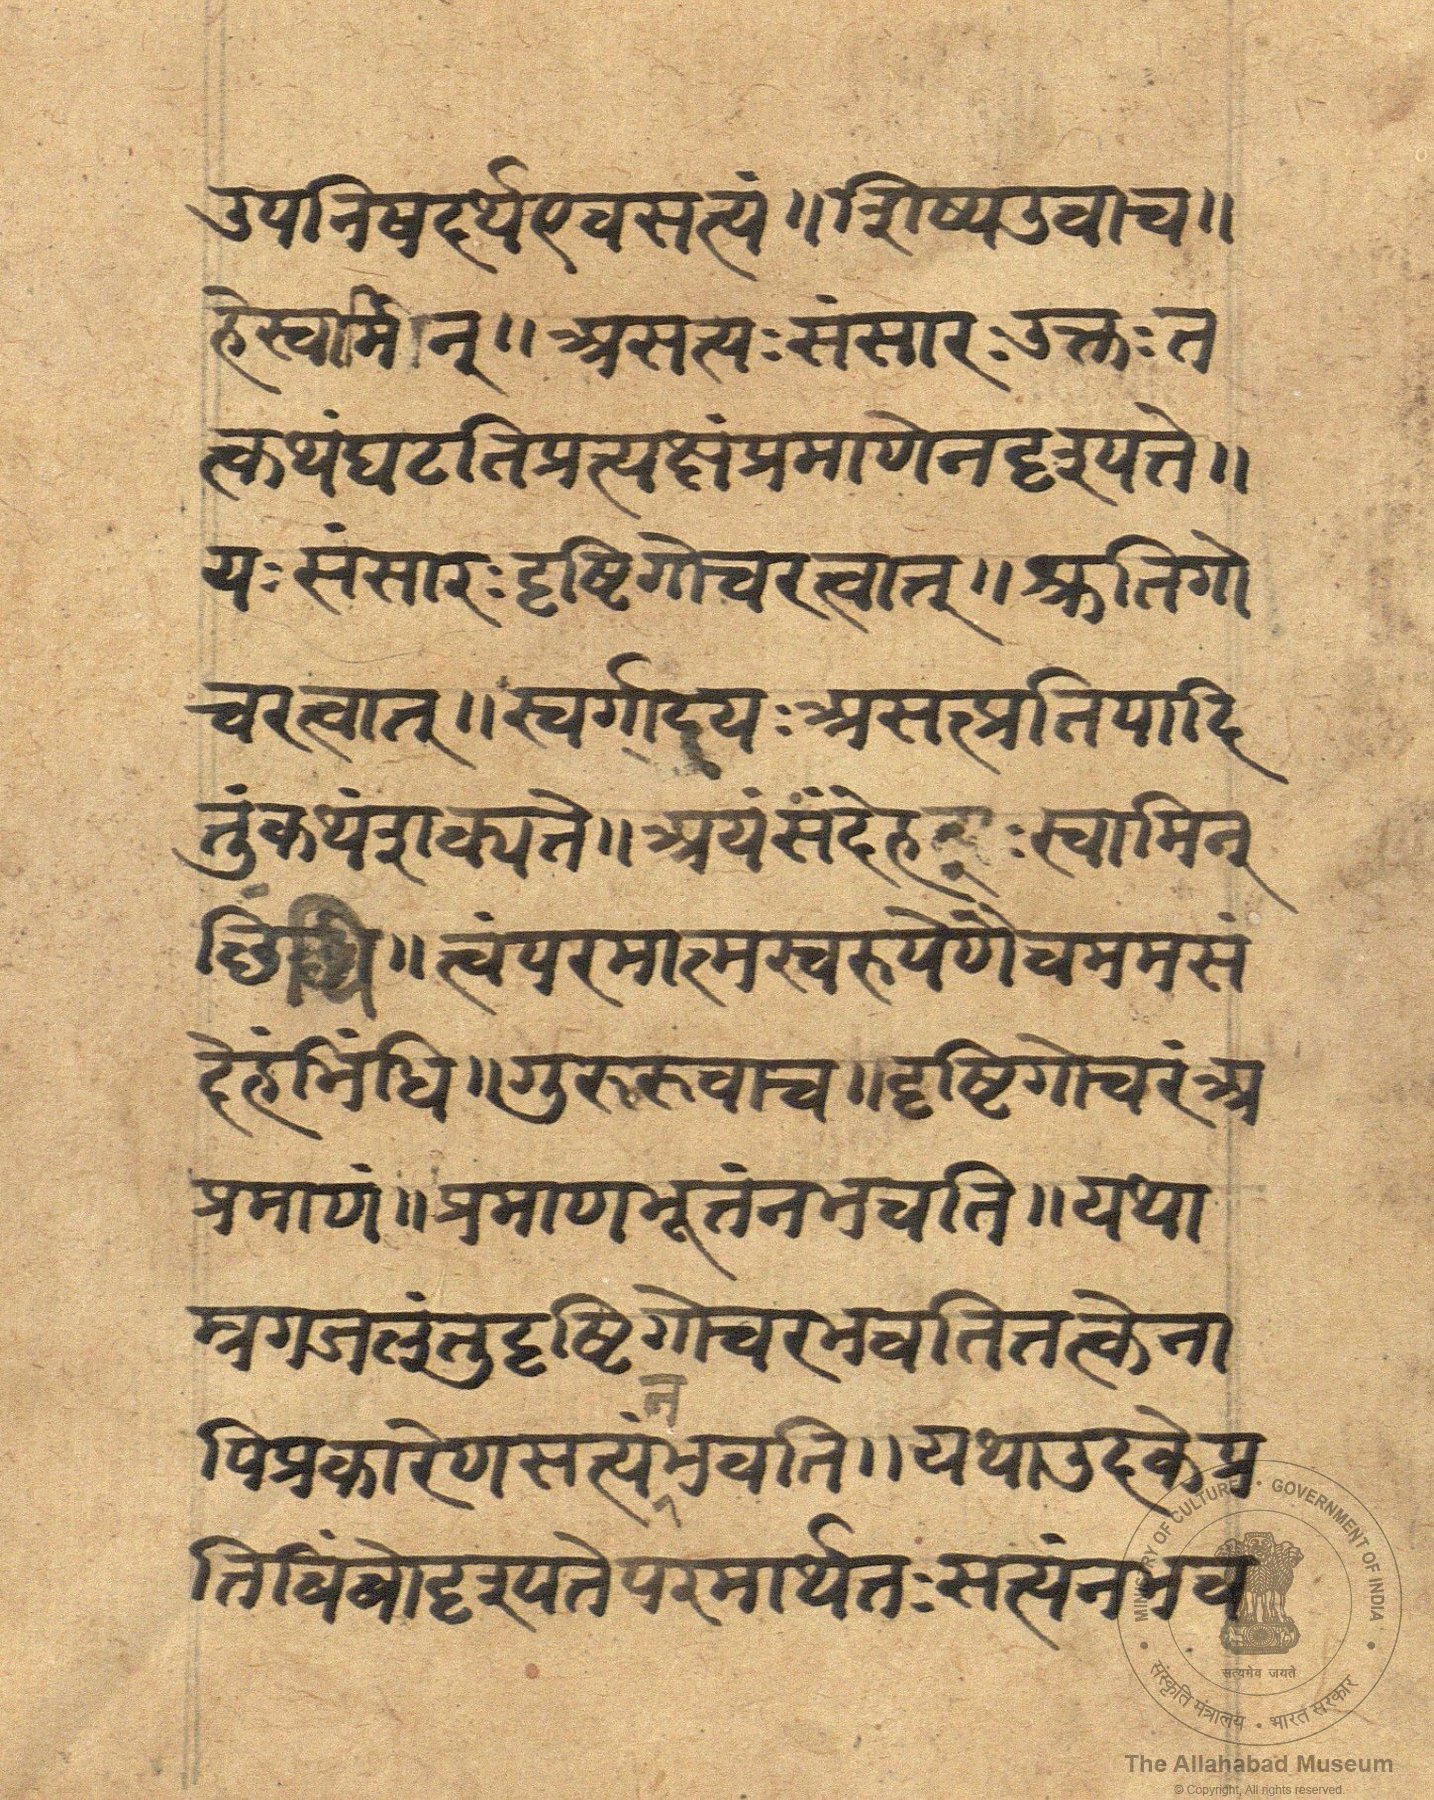 उपनिषदर्थएवसत्यं॥शिष्यउवाच॥
हेस्वामिन्॥असत्यःसंसारःउक्तःत
त्कथंघटतिप्रत्यक्षंप्रमाणेनदृश्यते॥
यःसंसारःदृष्टिगोचरत्वात्॥श्रुतिगो
चरत्वात्॥स्वर्गादयःअसत्प्रतिपादि
तुंकथंशक्यते॥अयंसंदेहःस्वामिन्
॥त्वंपरमात्मस्वरूपेणैवममसं
देहंभिंधि॥गुरुरुवाच॥दृष्टिगोचरंअ
प्रमाणं॥प्रमाणभूतंनभवति॥यथा
म्रगजलंतुदृष्टिगोचरभवतितत्केना
पिप्रकारेणसत्यंनभवति॥यथाउदकेप्र
तिबिंबोदृश्यतेपरमार्थतःसत्यंनभव
MINISTRY OF CULTURE • GOVERNMENT OF INDIA
सत्यमेव जयते
संस्कृति मंत्रालय • भारत सरकार
The Allahabad Museum
© Copyright, All rights reserved.